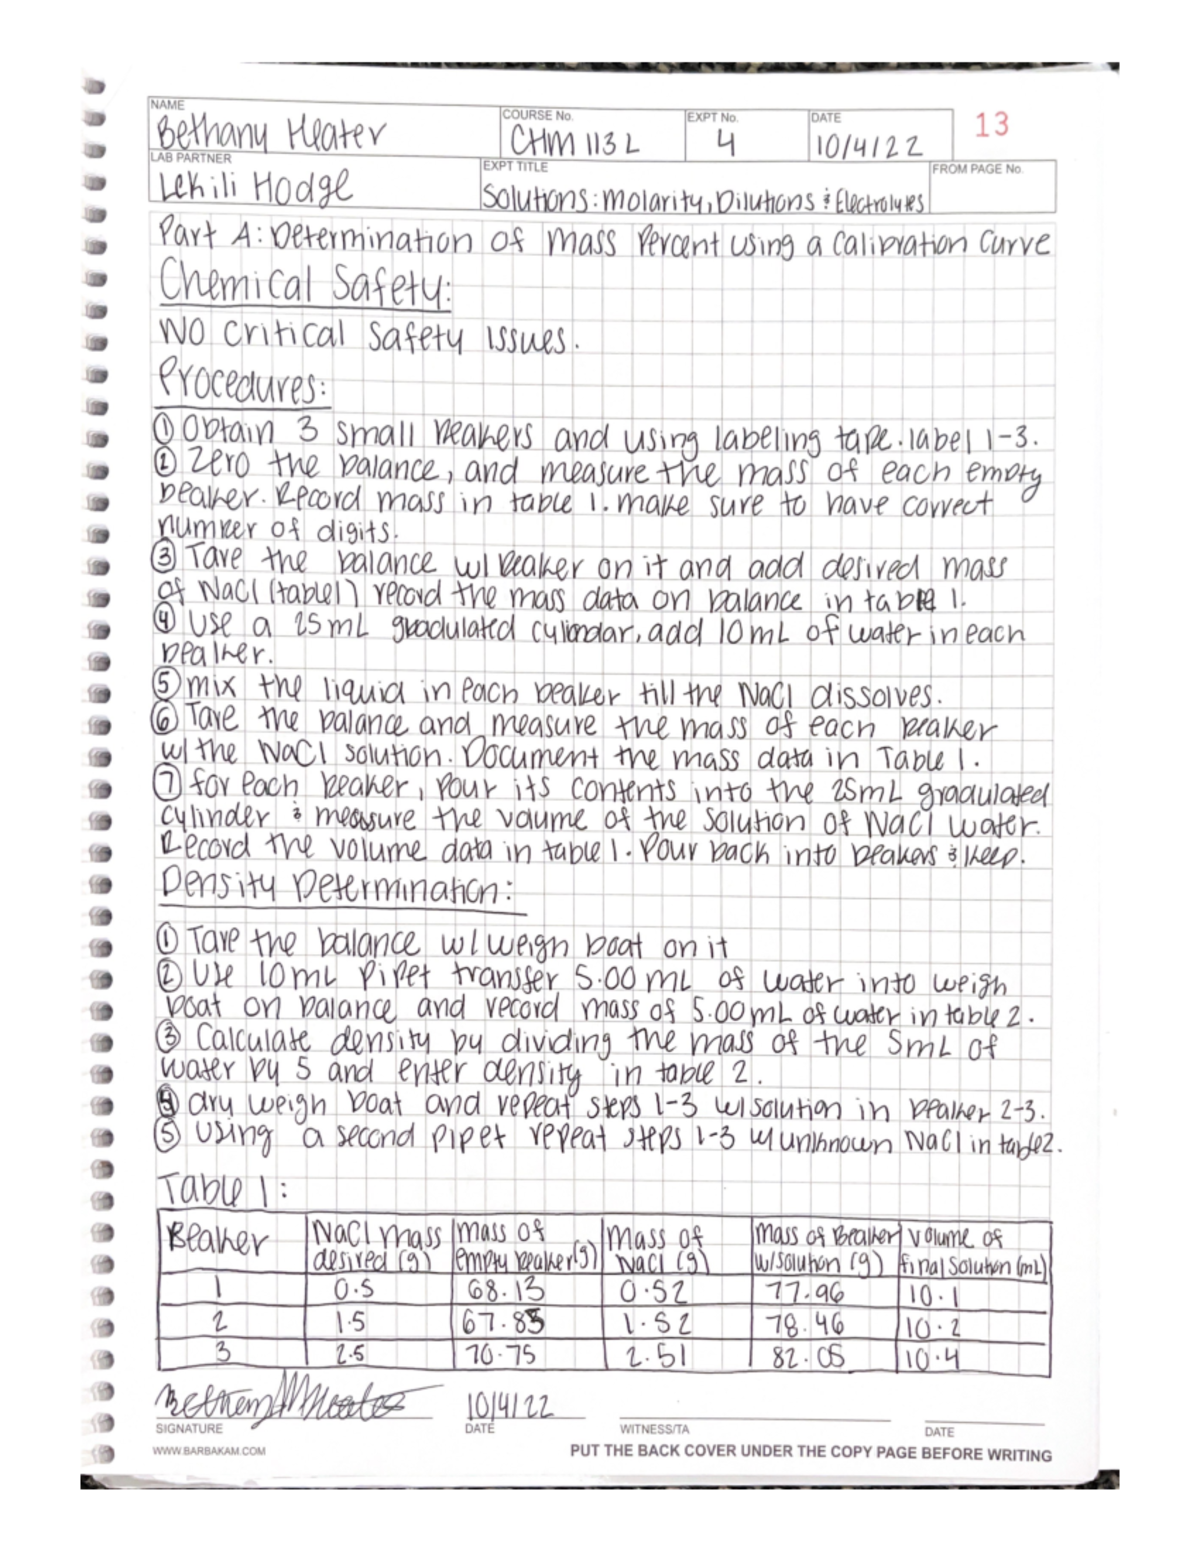 NAME
Bethany Heater
COURSE No.
CHM 113 L
EXPT No.
4
DATE
10/4/22
13
LAB PARTNER
Lekili Hodge
EXPT TITLE
Solutions: Molarity, Dilutions & Electrolytes
FROM PAGE No.
Part A: Determination of Mass Percent using a Calibration Curve
Chemical Safety:
No critical safety issues.
Procedures:
① Obtain 3 small beakers and using labeling tape. label 1-3.
② Zero the balance, and measure the mass of each empty
beaker. Record mass in table 1. make sure to have correct
number of digits.
③ Tare the balance w/ beaker on it and add desired mass
of NaCl (table1) record the mass data on balance in table 1.
④ Use a 25mL gradulated cylindar, add 10mL of water in each
beaker.
⑤ mix the liquid in each beaker till the NaCl dissolves.
⑥ Tare the balance and measure the mass of each beaker
w/ the NaCl solution. Document the mass data in Table 1.
⑦ for each beaker, pour its contents into the 25mL gradulated
cylinder & meassure the volume of the solution of NaCl water.
Record the volume data in table 1. Pour back into beakers & keep.
Density Determination:
① Tare the balance w/ weigh boat on it
② Use 10mL pipet transfer 5.00mL of water into weigh
boat on balance and record mass of 5.00mL of water in table 2.
③ Calculate density by dividing the mass of the 5mL of
water by 5 and enter density in table 2.
④ dry weigh boat and repeat steps 1-3 w/ solution in beaker 2-3.
⑤ Using a second pipet repeat steps 1-3 w/ unknown NaCl in table2.
Table 1:
Beaker | NaCl mass desired (g) | mass of empty beaker (g) | Mass of NaCl (g) | Mass of Beaker w/solution (g) | Volume of final solution (mL)
1 | 0.5 | 68.13 | 0.52 | 77.96 | 10.1
2 | 1.5 | 67.85 | 1.52 | 78.46 | 10.2
3 | 2.5 | 70.75 | 2.51 | 82.05 | 10.4
Bethany Heater
10/4/22
SIGNATURE
DATE
WITNESS/TA
DATE
WWW.BARBAKAM.COM
PUT THE BACK COVER UNDER THE COPY PAGE BEFORE WRITING